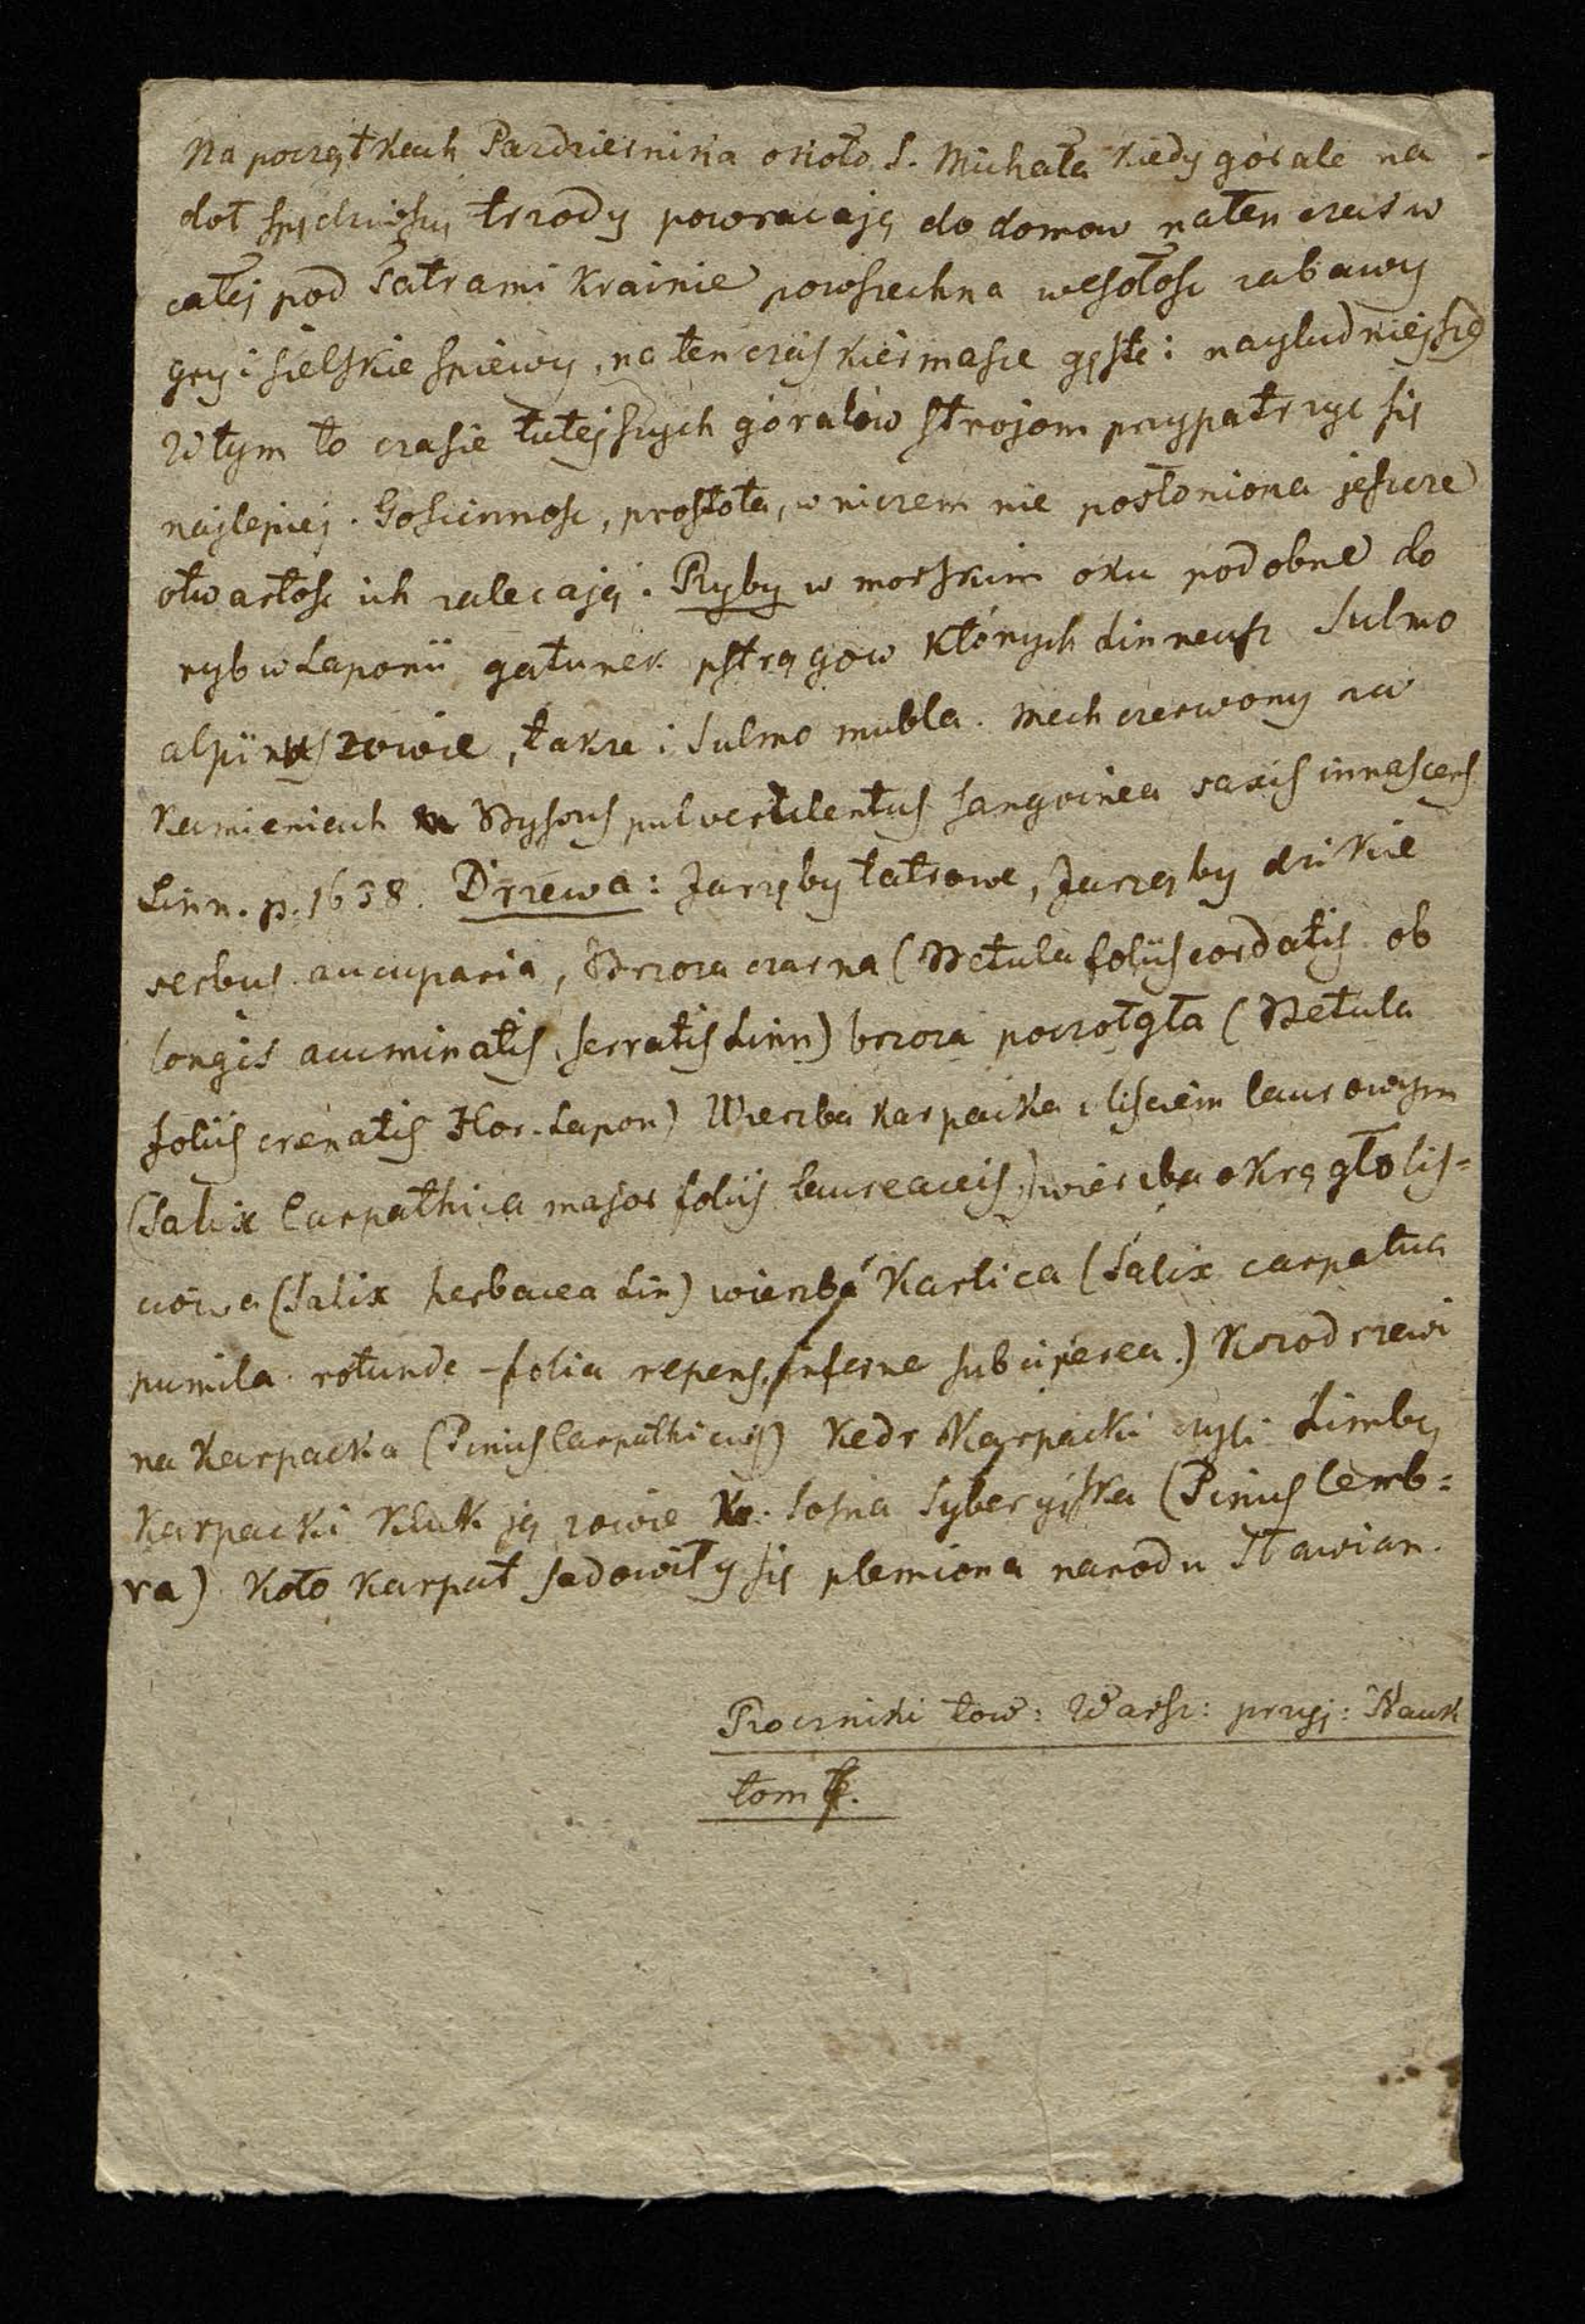 Na początkach Pazdziernika około S. Michała kiedy górale na
doł spędziwszy trzody powracają do domow naten czas w
całej pod Tatrami krainie powszechna wesołosc zabawy
gry i sielskie spiewy, na ten czas kiermasze gęste i nayludniejsze
W tym to czasie tutejszych góralów strojom przypatrzyc się
najlepiej. Goscinnosc, prostota, w niczem nie posłoniona jeszcze
otwartosc ich zalecają. Ryby w morskim oku podobne do
ryb w Laponii gatunek pstrągow których Linneusz Sulmo
alpinus zowie, takze i Sulmo mubla. Mech czerwony na
kamieniach Byssus pulverulentus sangvinea saxis innascens
Linn. p. 1638. Drzewa: Jarzęby tatrowe, Jarzęby dzikie
serbus aucuparia, Brzoza czarna (Betula foliis cordatis ob
longis acuminatis, serratis Linn) brzoza poczołgła (Betula
foliis crenatis Flor. Lapon) Wierzba karpacka z lisciem laurowym
(Salix Carpathica major foliis laureaceis) wierzba okrągłolis=
ciowa (Salix herbacea Lin) wierzba Karlica (Salix carpatica
pumila rotunde-folia repens, inferne subcinerea.) Kozodrzewi
na karpacka (Pinus Carpathicus) Kedr Karpacki czyli Limba
Karpacki Kluk ją zowie Sosna Syberyiska (Pinus Cemb=
ra) Koło Karpat sadowiły się plemiona narodu Sławian.
Roczniki tow: Warsz: przyj: Nauk
tom